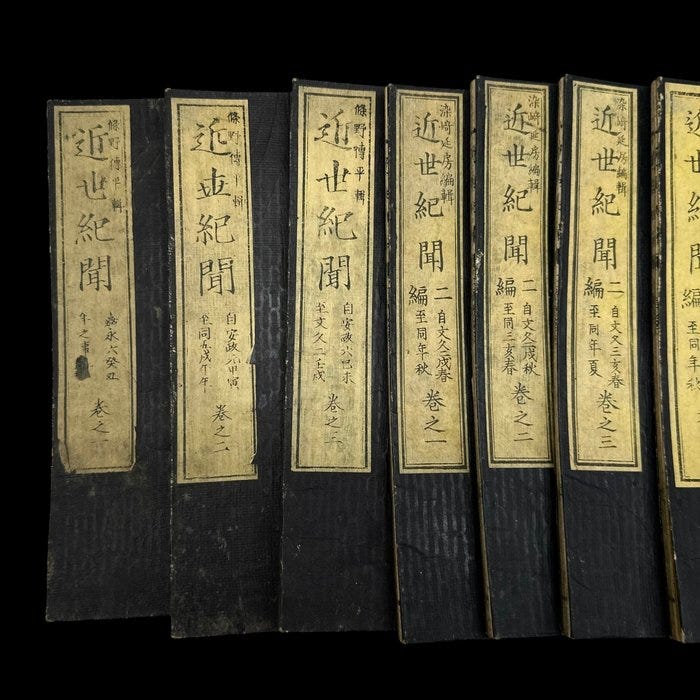 條野傳平輯
近世紀聞
嘉永六癸丑
年之事
卷之一
條野傳平輯
近世紀聞
自安政六甲寅
至同五戊午年
卷之二
條野傳平輯
近世紀聞
自安政六己未
至文久二壬戌
卷之三
染崎延房編輯
近世紀聞
二編
自文久二戌春
至同年秋
卷之一
染崎延房編輯
近世紀聞
二編
自文久二戌秋
至同三亥春
卷之二
染崎延房編輯
近世紀聞
二編
自文久三亥春
至同年夏
卷之三
近世紀聞
編